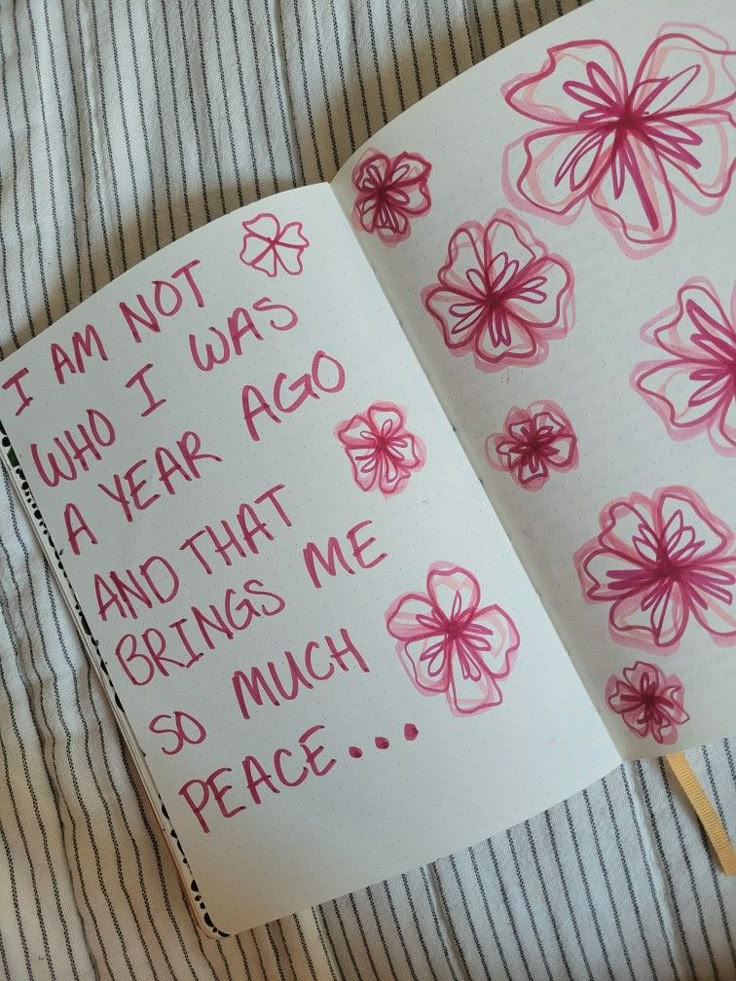 I AM NOT
WHO I WAS
A YEAR AGO
AND THAT
BRINGS ME
SO MUCH
PEACE...